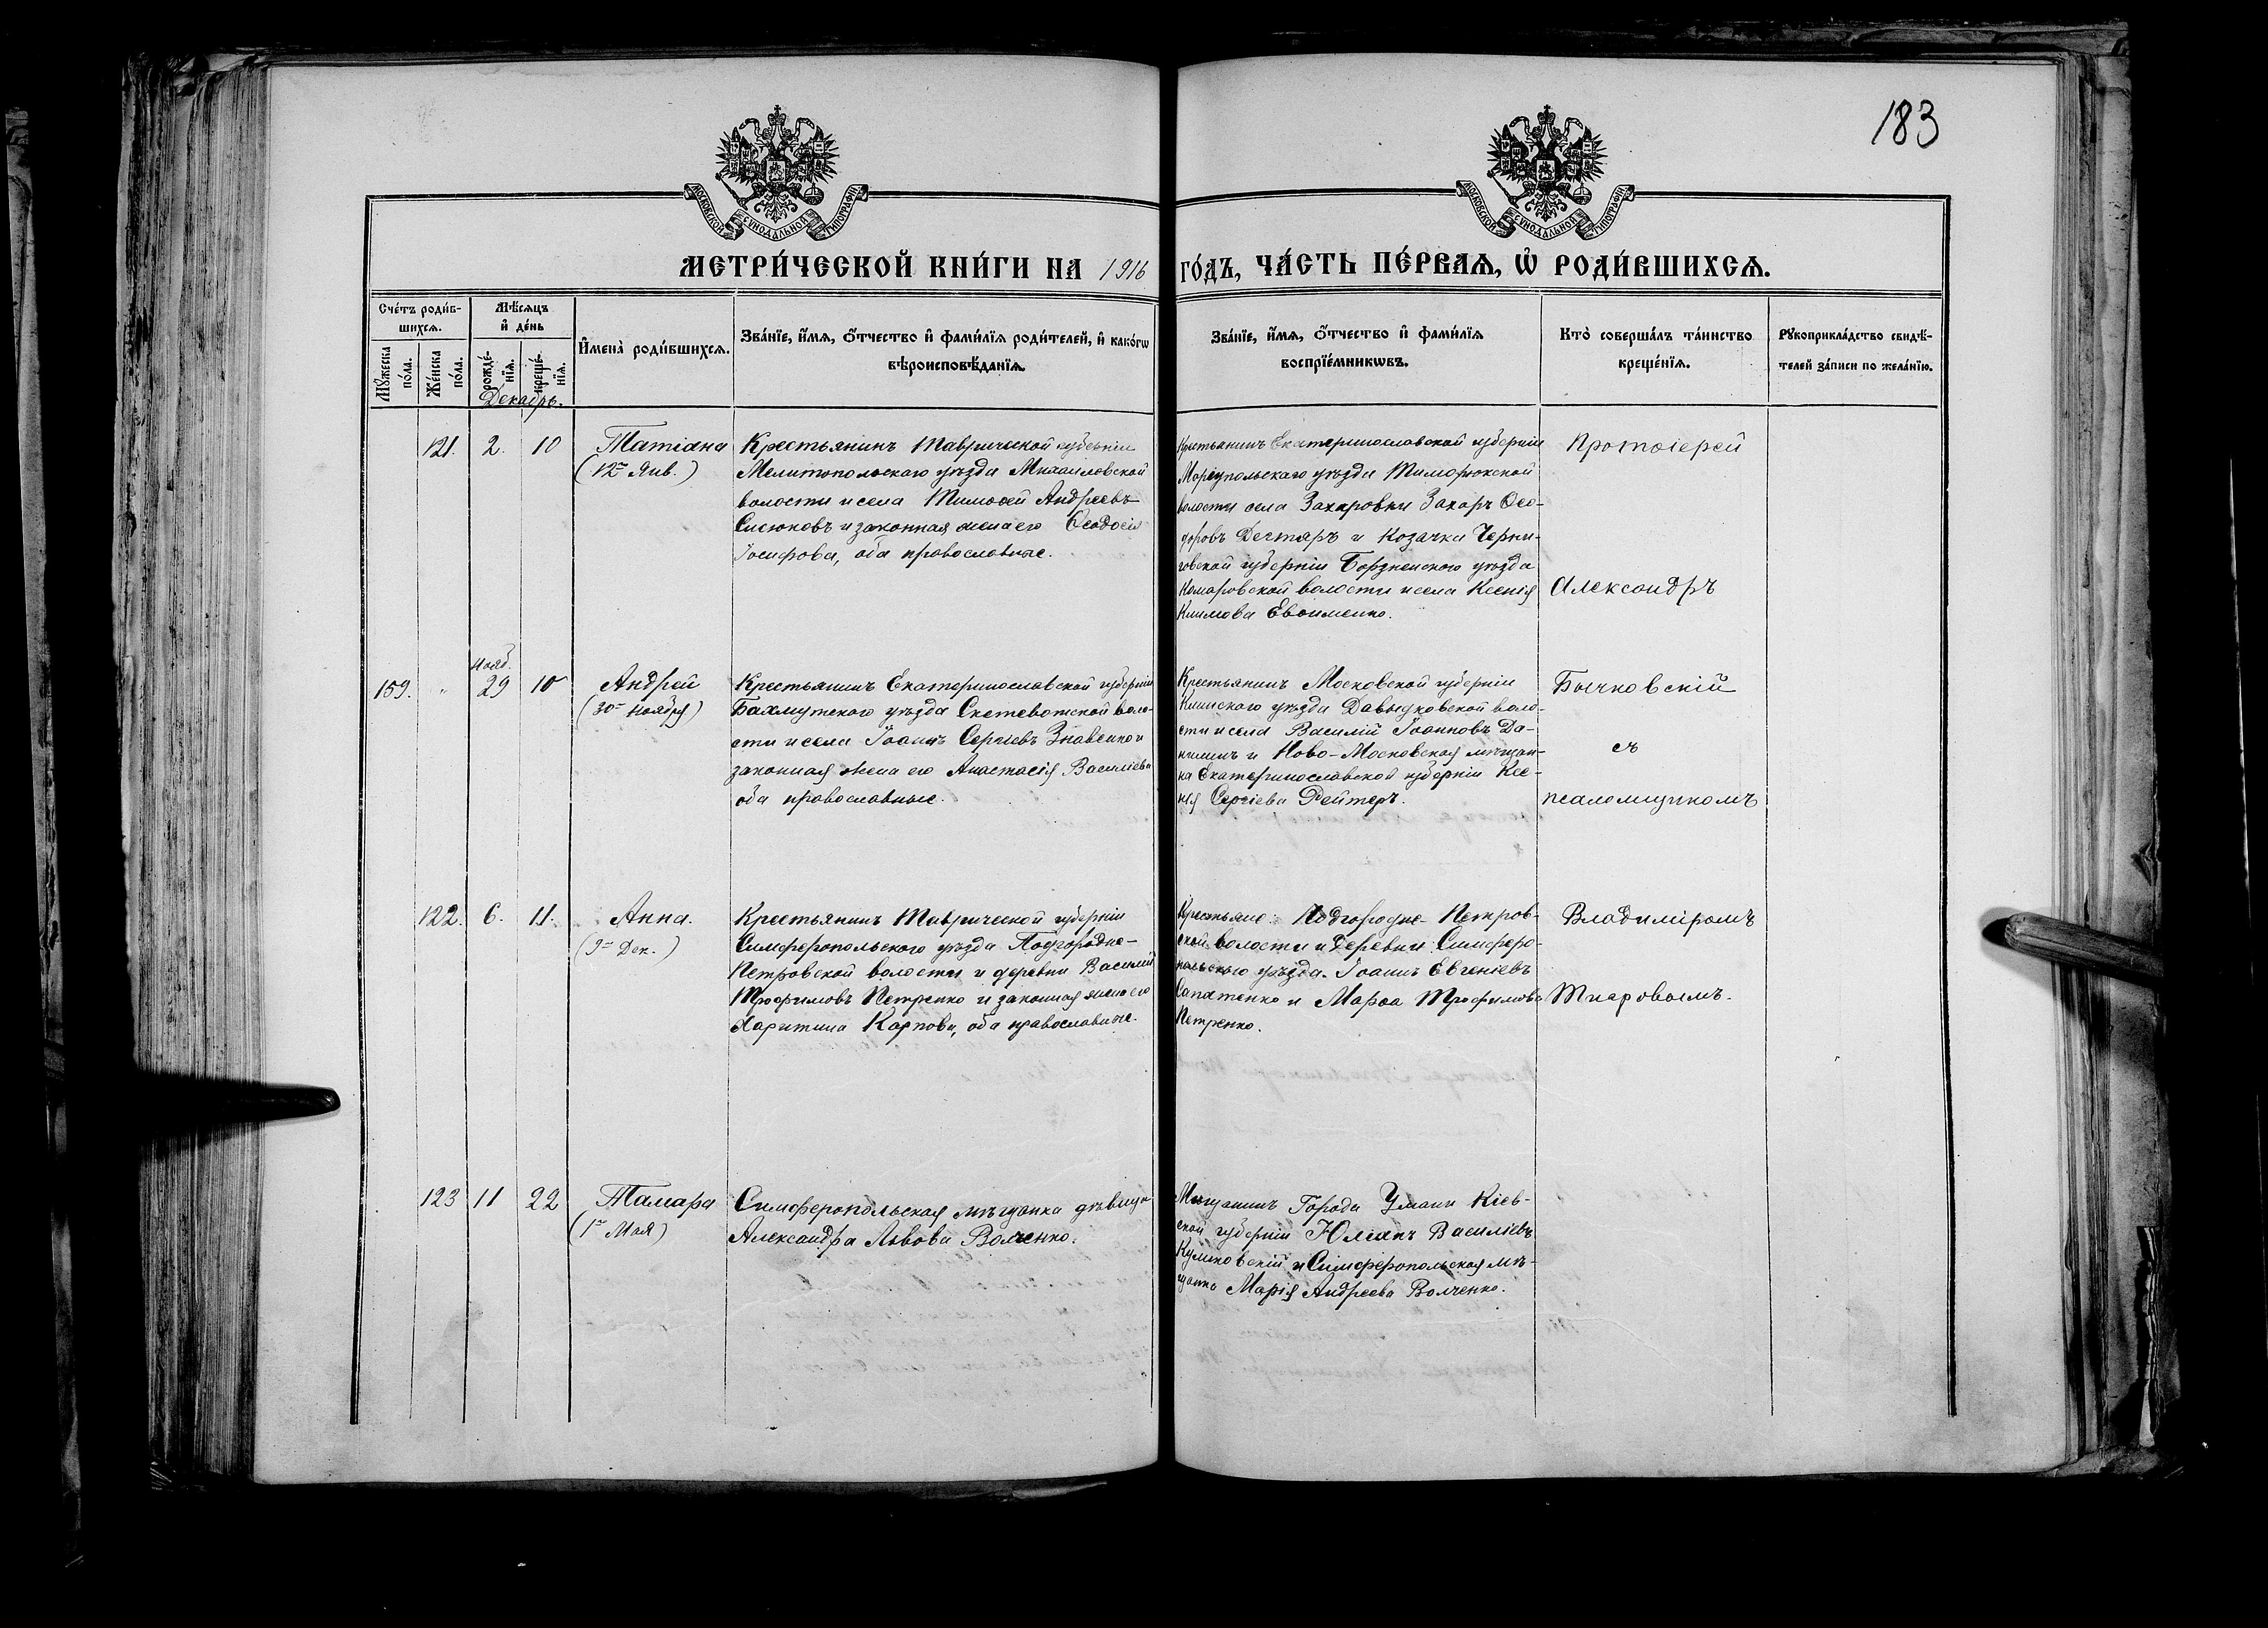 183
МОСКОВСКОЙ СѴНОДАЛЬНОЙ ТИПОГРАФІИ
МОСКОВСКОЙ СѴНОДАЛЬНОЙ ТИПОГРАФІИ
МЕТРИ́ЧЕСКОЙ КНИ́ГИ НА 1916 ГО́ДЪ, ЧА́СТЬ ПЕ́РВАѦ, Ѡ҆ РОДИ́ВШИХСѦ.
Сче́тъ роди́в-
шихсѧ.
Мꙋ́жеска по́ла.
Же́нска по́ла.
Мѣ́сѧцъ
и҆ де́нь
рожде́-
нїѧ.
креще́-
нїѧ.
Декабрь.
И҆мена̀ роди́вшихсѧ.
Зва́нїе, и҆́мѧ, ѻ҆́тчество и҆ фами́лїѧ роди́телей, и҆ како́гѡ
вѣроисповѣ́данїѧ.
Зва́нїе, и҆́мѧ, ѻ҆́тчество и҆ фами́лїѧ
воспрїе́мникѡвъ.
Кто̀ соверша́лъ та́инство
креще́нїѧ.
Рꙋкоприкла́дство свидѣ́-
телей за́писи по жела́нїю.
121. 2. 10 Татіана
(12го Янв.)
Крестьянинъ Таврической губерніи
Мелитопольскаго уѣзда Михайловской
волости и села Тимоѳей Андреевъ
Сисюковъ и законная жена его Ѳеодосія
Іосифова, оба православные.
Крестьянинъ Екатеринославской губерніи
Маріупольскаго уѣзда Темрюкской
волости села Захаровки Захаръ Ѳео-
доровъ Дегтяръ и козачка Черни-
говской губерніи Борзненскаго уѣзда
Комаровской волости и села Ксенія
Климова Евфименко.
159. " Нояб. 29 10 Андрей
(30го Ноября)
Крестьянинъ Екатеринославской губерніи
Бахмутскаго уѣзда Скотоватской воло-
сти и села Іоаннъ Сергіевъ Знаве́нко и
законная жена его Анастасія Василіева
оба православные.
Крестьянинъ Московской губерніи
Клинскаго уѣзда Давыдковской воло-
сти и села Василій Іоанновъ Да-
нилинъ и Ново-Московская мѣщан-
ка Екатеринославской губерніи Ксе-
нія Сергіева Рейтеръ.
122. 6. 11. Анна.
(9го Дек.)
Крестьянинъ Таврической губерніи
Симферопольскаго уѣзда Подгородне-
Петровской волости и деревни Василій
Трофимовъ Петренко и законная жена его
Харитина Карпова, оба православные.
Крестьяне: Подгородне-Петров-
ской волости и деревни Симферо-
польскаго уѣзда. Іоаннъ Евгеніевъ
Сапатенко и Марѳа Трофимова
Петренко.
123 11 22 Тамара
(1го Мая)
Симферопольская мѣщанка дѣвица
Александра Львова Волченко.
Мѣщанинъ Города Умани Кіев-
ской губерніи Юліанъ Василіевъ
Куликовскій и Симферопольская мѣ-
щанка Марія Андреева Волченко.
Протоіерей
Александръ
Бычковскій
съ
псаломщикомъ
Владиміромъ
Тиаровымъ.